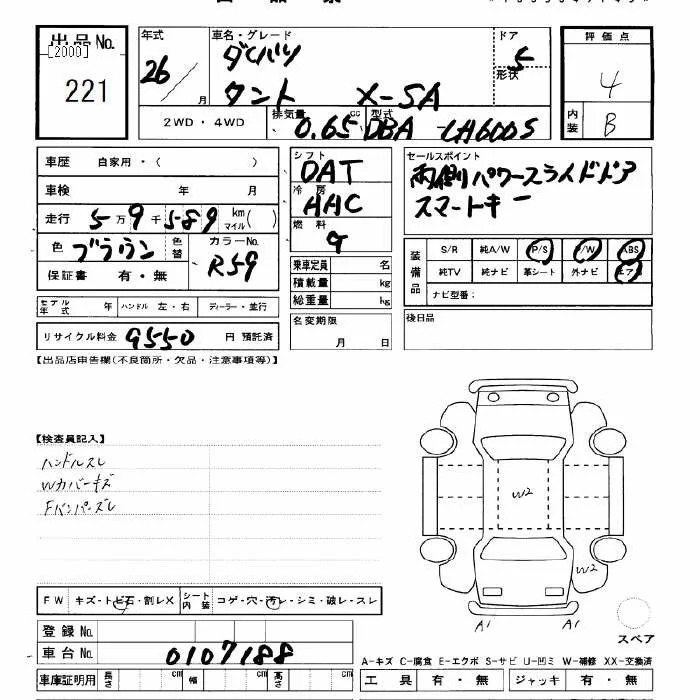 出品No.
[2000]
221
年式
26
月
車名・グレード
ダイハツ
タント X-SA
ドア
5
形状
2WD・4WD
排気量
0.65
cc
型式
DBA LA600S
評価点
4
内装
B
車歴 自家用・( )
車検 年 月
走行 5万9千589 km マイル( )
色 ブラウン 色替 カラーNo. R59
保証書 有・無
モデル年式 年 ハンドル 左・右 ディーラー・並行
リサイクル料金 9550 円 預託済
シフト
DAT
冷房
AAC
燃料
G
乗車定員 名
積載量 kg
総重量 kg
名変期限
月 日
セールスポイント
両側パワースライドドア
スマートキー
装備品
S/R 純A/W P/S P/W ABS
純TV 純ナビ 革シート 外ナビ エアB
ナビ型番:
後日品
【出品店申告欄(不良箇所・欠品・注意事項等)】
【検査員記入】
ハンドルスレ
Wカバーキズ
Fバンパーズレ
W2
W2
A1 A1
スペア
FW キズ・トビ石・割レX シート内装 コゲ・穴・汚レ・シミ・破レ・スレ
登録No.
車台No. 0107188
車庫証明用 長さ cm 幅 cm 高さ cm
A-キズ C-腐食 E-エクボ S-サビ U-凹ミ W-補修 XX-交換済
工具 有・無 ジャッキ 有・無